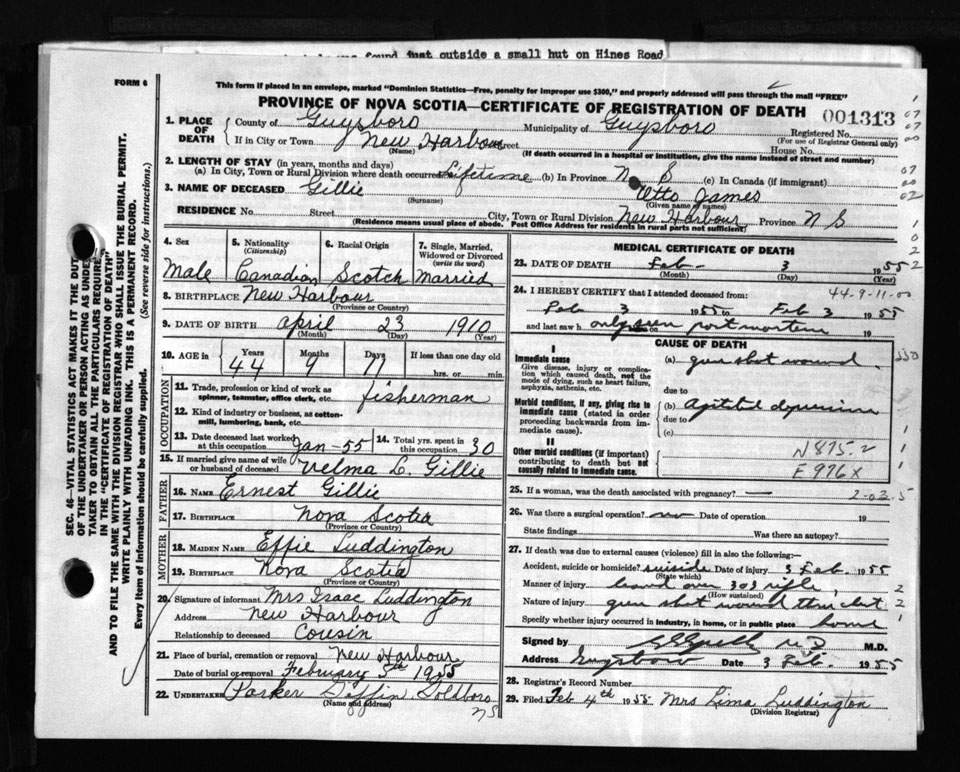 found just outside a small hut on Hines Road
FORM 6
This form if placed in an envelope, marked "Dominion Statistics—Free, penalty for improper use $300," and properly addressed will pass through the mail "FREE"
PROVINCE OF NOVA SCOTIA—CERTIFICATE OF REGISTRATION OF DEATH
001313
SEC. 46—VITAL STATISTICS ACT MAKES IT THE DUTY
OF THE UNDERTAKER OR PERSON ACTING AS UNDER-
TAKER TO OBTAIN ALL THE PARTICULARS REQUIRED
IN THE "CERTIFICATE OF REGISTRATION OF DEATH"
AND TO FILE THE SAME WITH THE DIVISION REGISTRAR WHO SHALL ISSUE THE BURIAL PERMIT.
WRITE PLAINLY WITH UNFADING INK. THIS IS A PERMANENT RECORD.
Every item of information should be carefully supplied. (See reverse side for instructions.)
1. PLACE OF DEATH
County of Guysboro Municipality of Guysboro Registered No.
(For use of Registrar General only)
If in City or Town New Harbour Street House No.
(Name) (If death occurred in a hospital or institution, give the name instead of street and number)
2. LENGTH OF STAY (in years, months and days)
(a) In City, Town or Rural Division where death occurred Lifetime (b) In Province N S (c) In Canada (if immigrant)
3. NAME OF DECEASED Gillie Otto James
(Surname) (Given name or names)
RESIDENCE No. Street City, Town or Rural Division New Harbour Province N S
(Residence means usual place of abode. Post Office Address for residents in rural parts not sufficient)
4. Sex Male
5. Nationality (Citizenship) Canadian
6. Racial Origin Scotch
7. Single, Married, Widowed or Divorced (write the word) Married
8. BIRTHPLACE New Harbour
(Province or Country)
9. DATE OF BIRTH April 23 1910
(Month) (Day) (Year)
10. AGE in Years Months Days If less than one day old
44 9 11 hrs. or min.
OCCUPATION
11. Trade, profession or kind of work as spinner, teamster, office clerk, etc. fisherman
12. Kind of industry or business, as cotton-mill, lumbering, bank, etc.
13. Date deceased last worked at this occupation Jan-55
14. Total yrs. spent in this occupation 30
15. If married give name of wife or husband of deceased Velma L. Gillie
FATHER
16. NAME Ernest Gillie
17. BIRTHPLACE Nova Scotia
(Province or Country)
MOTHER
18. MAIDEN NAME Effie Luddington
19. BIRTHPLACE Nova Scotia
(Province or Country)
20. Signature of informant Mrs Isaac Luddington
Address New Harbour
Relationship to deceased Cousin
21. Place of burial, cremation or removal New Harbour
Date of burial or removal February 5th 1955
22. UNDERTAKER Parker Giffin Goldboro
(Name and address) NS
MEDICAL CERTIFICATE OF DEATH
23. DATE OF DEATH Feb- 3 1955
(Month) (Day) (Year)
24. I HEREBY CERTIFY that I attended deceased from: 44-9-11-00
Feb 3 1955 to Feb 3 1955
and last saw h only seen post mortem 19
CAUSE OF DEATH
I
Immediate cause
Give disease, injury or complication which caused death, not the mode of dying, such as heart failure, asphyxia, asthenia, etc.
(a) gun shot wound
due to
Morbid conditions, if any, giving rise to immediate cause (stated in order proceeding backwards from immediate cause).
(b) Agitated depression
due to
(c)
II
Other morbid conditions (if important) contributing to death but not causally related to immediate cause.
N875.2
E976X
25. If a woman, was the death associated with pregnancy? 2-03-5
26. Was there a surgical operation? no Date of operation 19
State findings Was there an autopsy?
27. If death was due to external causes (violence) fill in also the following:—
Accident, suicide or homicide? suicide Date of injury 3 Feb. 1955
(State which)
Manner of injury over 303 rifle
(How sustained)
Nature of injury gun shot wound thru chest
Specify whether injury occurred in industry, in home, or in public place home
Signed by M.D.
Address Guysboro Date 3 Feb. 1955
28. Registrar's Record Number
29. Filed Feb 4th 1955 Mrs Lima Luddington
(Division Registrar)